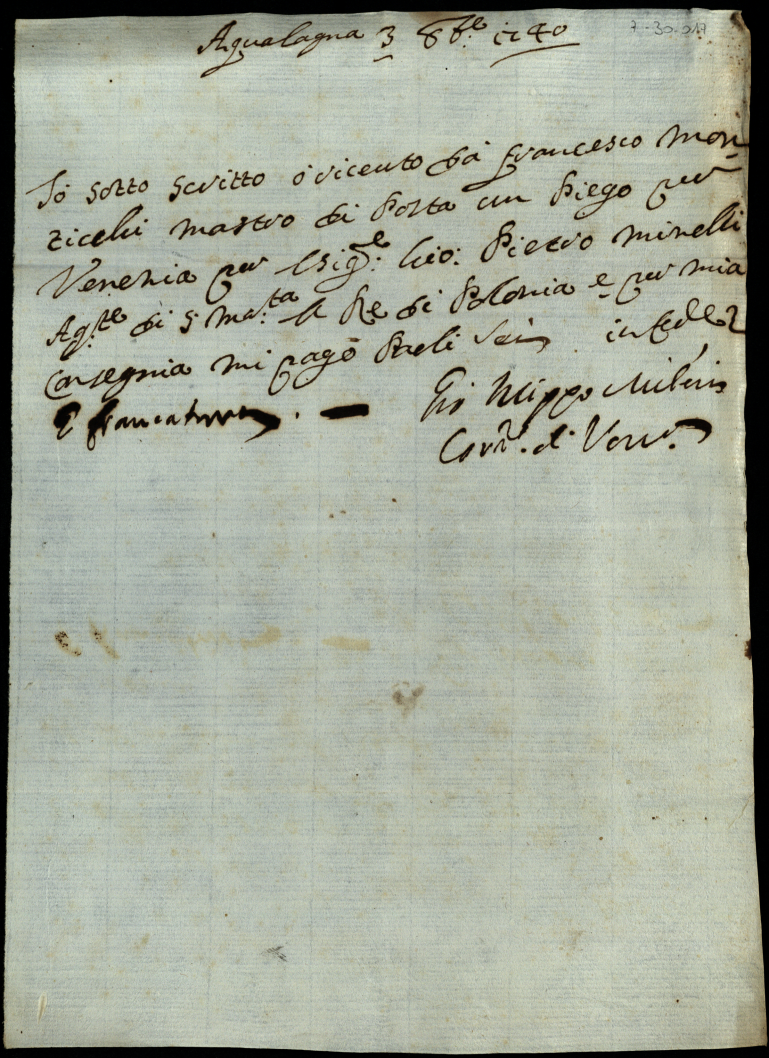 Aqualagna 3 8b.re 1740
7-30-017
Io sotto scritto ò riceuto dà francesco Mon
ticelli mastro di Posta un Piego per
Venehia per lSig.e: Gio: Pietro Minelli
Ag.te di S Ma.ta il Re di Polonia e per mia
Consegnia mi pagò Paoli Sei in fede
E francatura. — Gio filippo
Corr.e di Ven.a